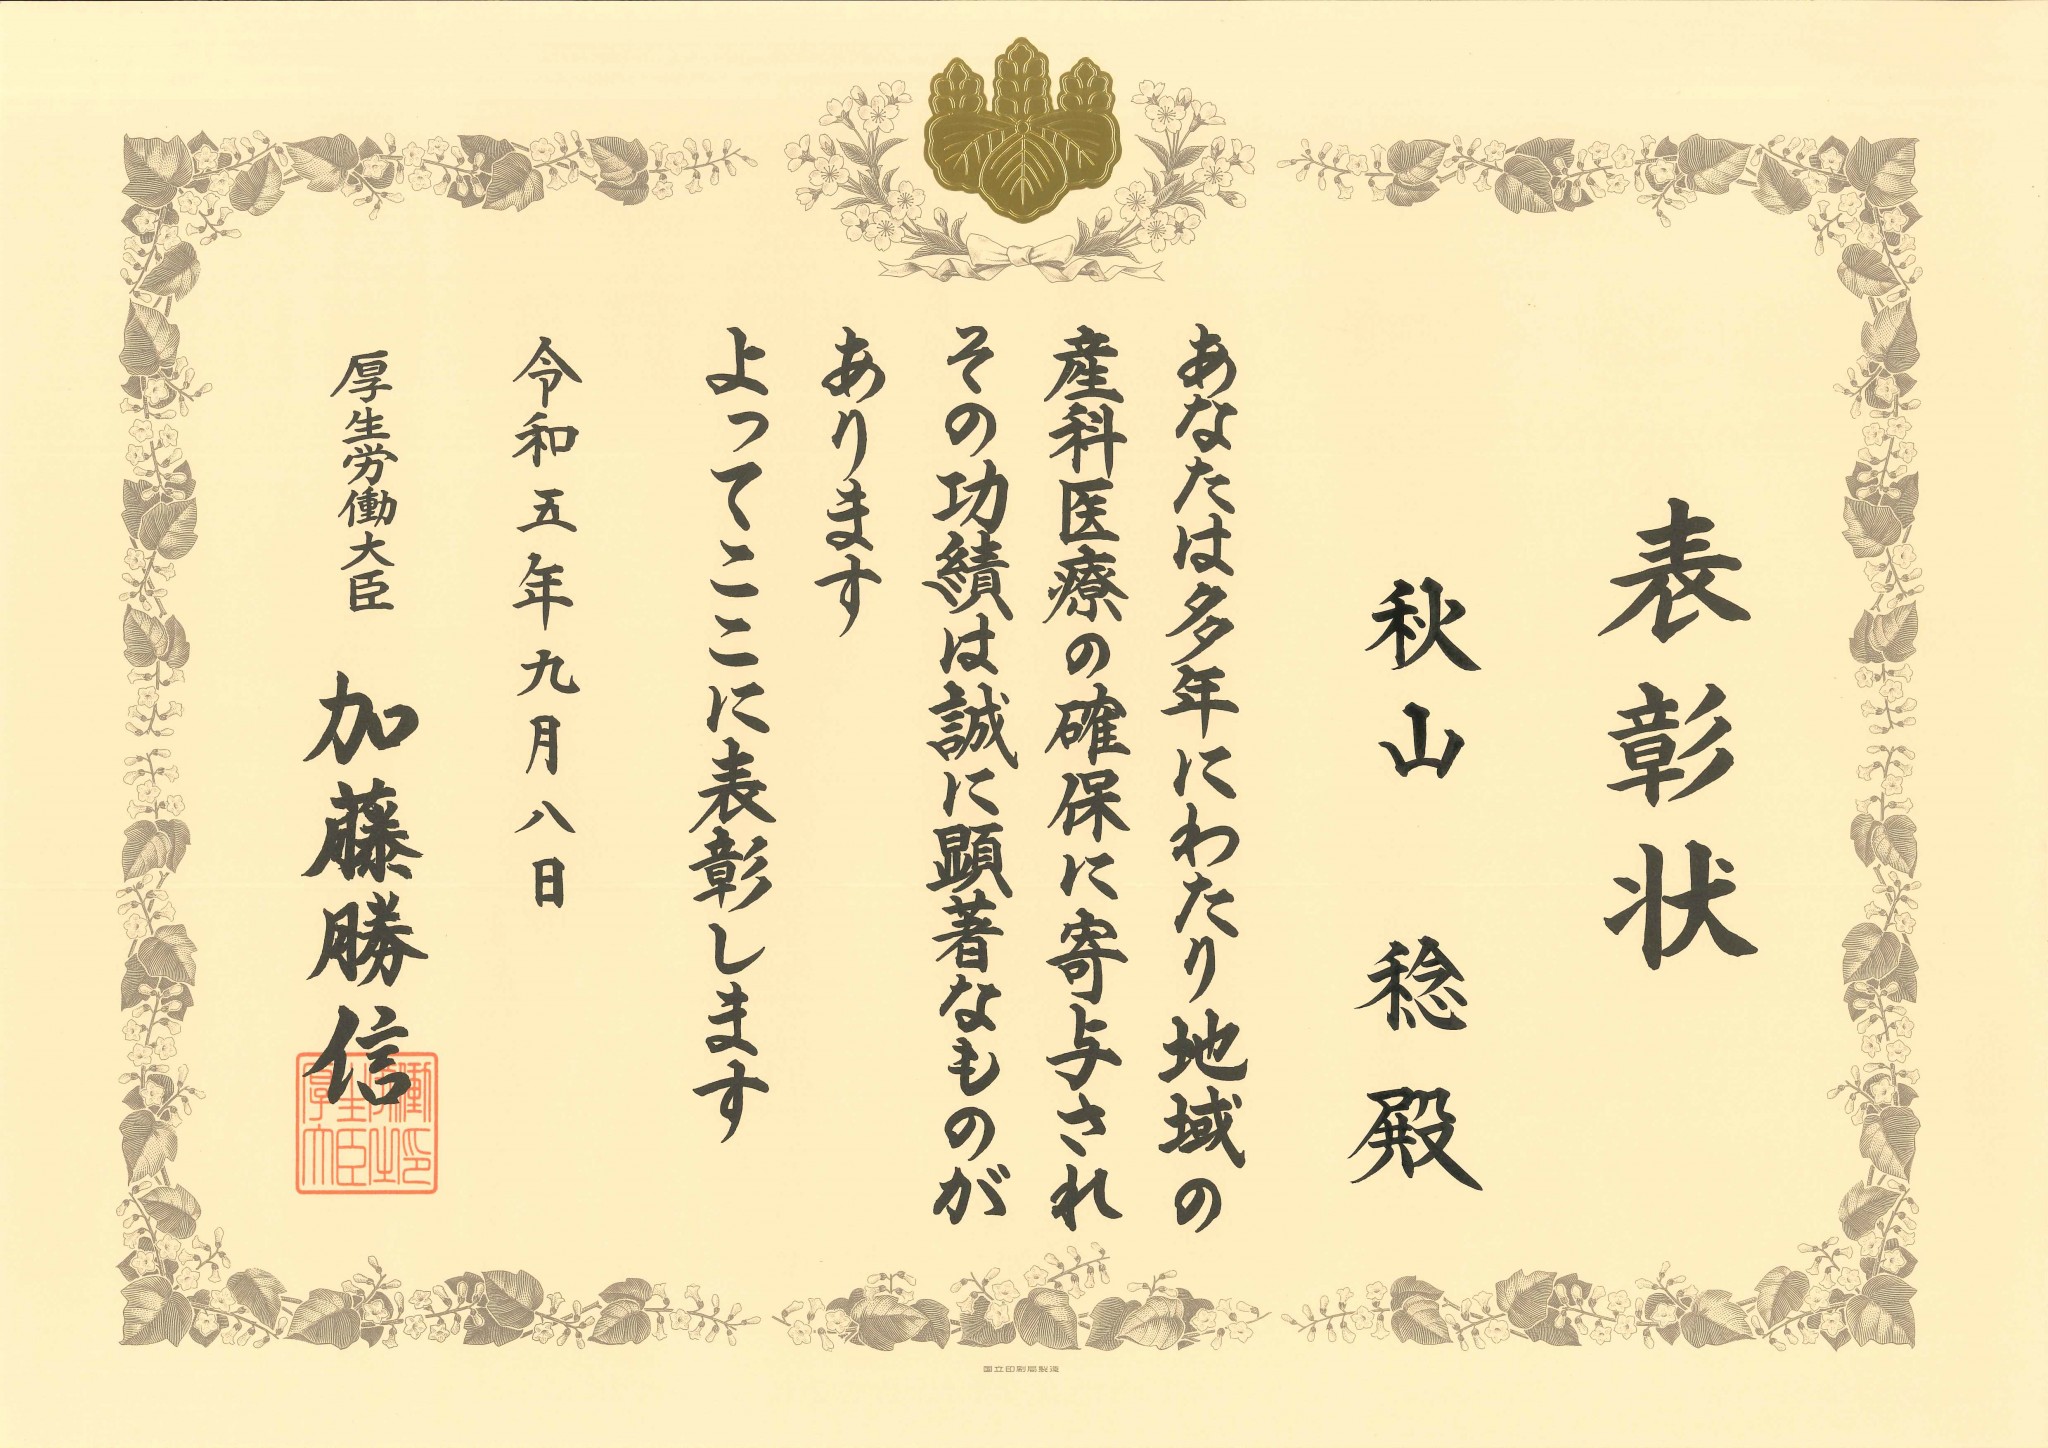 表彰状
秋山 稔 殿
あなたは多年にわたり地域の
産科医療の確保に寄与され
その功績は誠に顕著なものが
あります
よってここに表彰します
令和五年九月八日
厚生労働大臣 加藤勝信
厚生労働大臣之印
国立印刷局製造